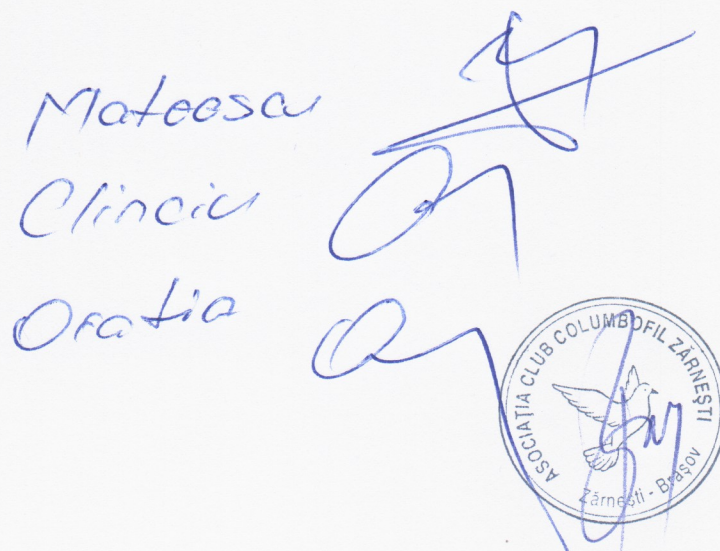 Mateescu
Clinciu
Oratia
ASOCIAȚIA CLUB COLUMBOFIL ZĂRNEȘTI
Zărnești - Brașov